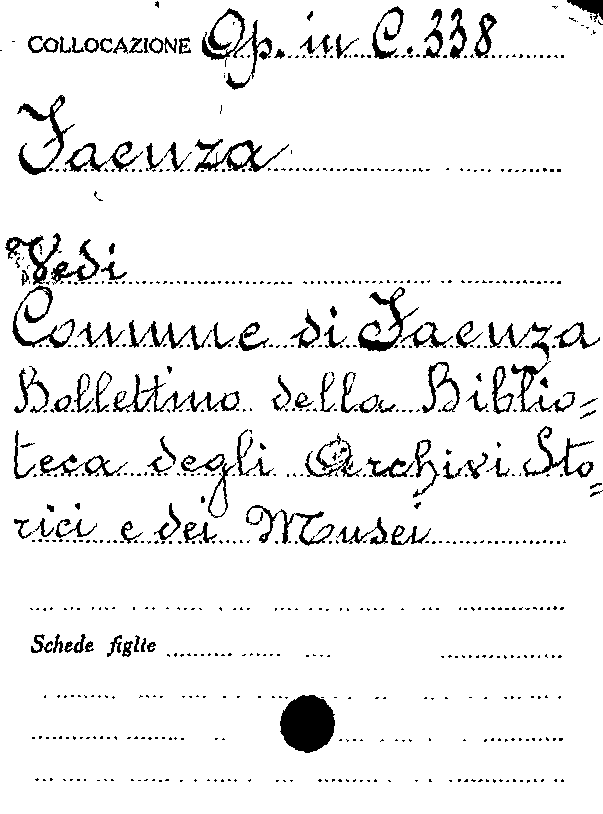 COLLOCAZIONE Op. in C. 338
Faenza
Vedi
Comune di Faenza
Bollettino della Biblio=
teca degli Archivi Sto=
rici e dei Musei
Schede figlie